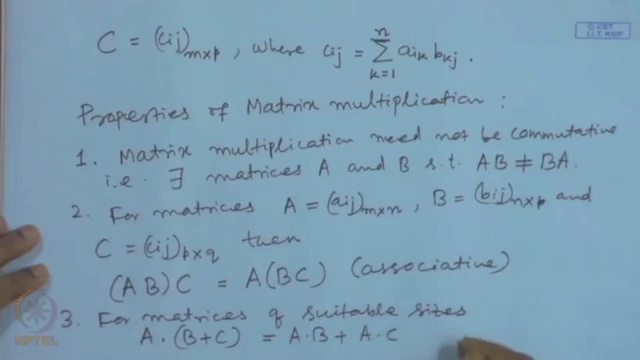 C = (cij)m×p, where cij = n∑k=1 aik bkj.
© CET
I.I.T. KGP
Properties of Matrix multiplication :
1. Matrix multiplication need not be commutative
i.e. ∃ matrices A and B s.t. AB ≠ BA.
2. For matrices A = (aij)m×n, B = (bij)n×p and
C = (cij)p×q then
(AB)C = A(BC) (associative)
3. For matrices of suitable sizes
A·(B+C) = A·B + A·C
NPTEL